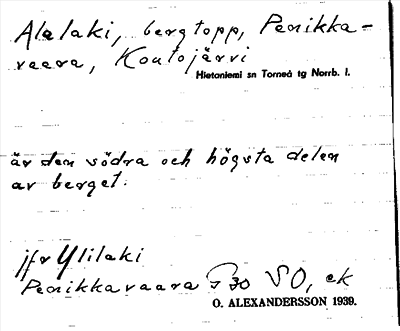 Alalaki, bergtopp, Penikka-
vaara, Koutojärvi
Hietaniemi sn Torneå tg Norrb. l.
är den södra och högsta delen
av berget.
jfr Ylilaki
Penikkavaara 30 SO, ek
O. ALEXANDERSSON 1939.